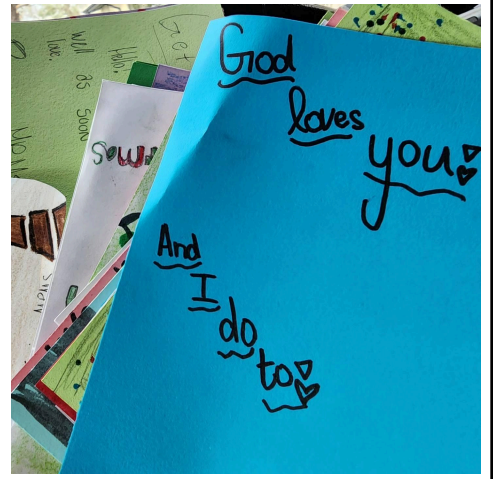 God
loves
you
And
I
do
to
Get
Hello,
Well as soon
love,